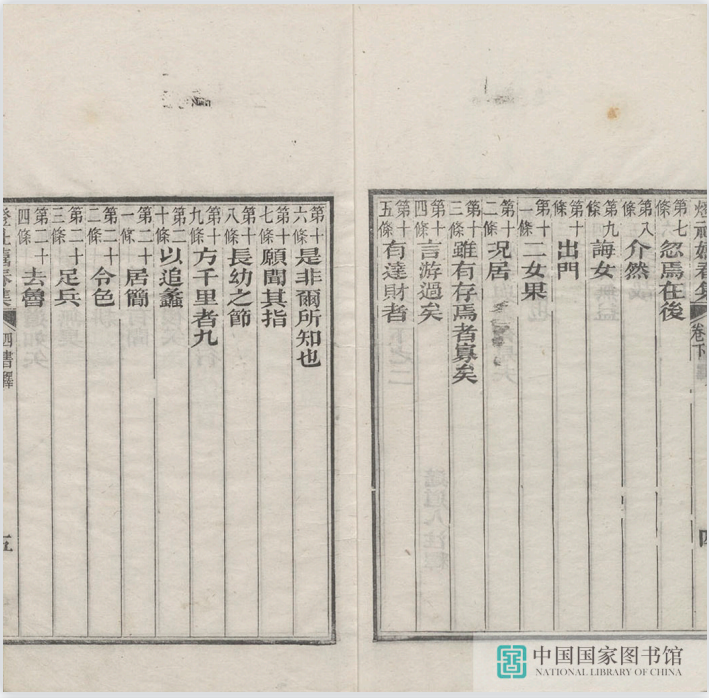 卷下
四
第七條 忽焉在後
第八條 介然
第九條 誨女
第十條 出門
第十一條 二女果
第十二條 況居
第十三條 雖有存焉者寡矣
第十四條 言游過矣
第十五條 有達財者
第十六條 是非爾所知也
第十七條 願聞其指
第十八條 長幼之節
第十九條 方千里者九
第二十條 以追蠡
第二十一條 居簡
第二十二條 令色
第二十三條 足兵
第二十四條 去魯
春集
四書釋
五
中国国家图书馆
NATIONAL LIBRARY OF CHINA